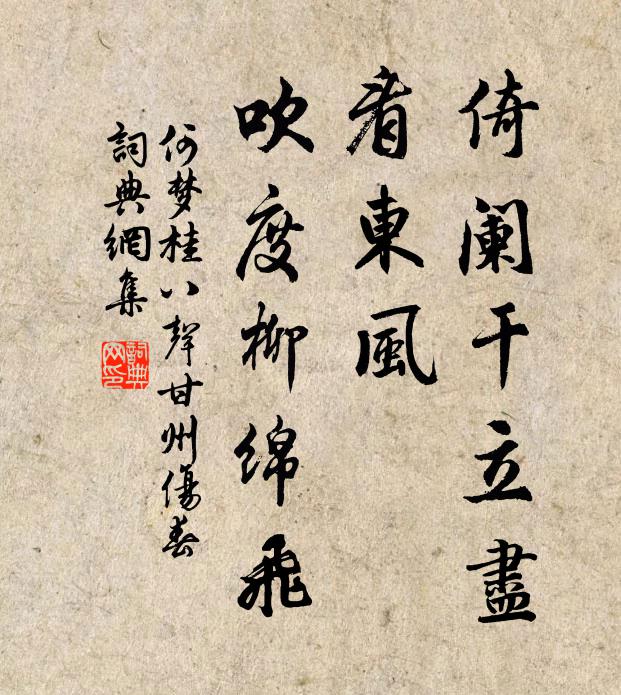 倚阑干立盡
看東風
吹度柳綿飛
何梦桂八聲甘州傷春
詞典網集
詞典網印